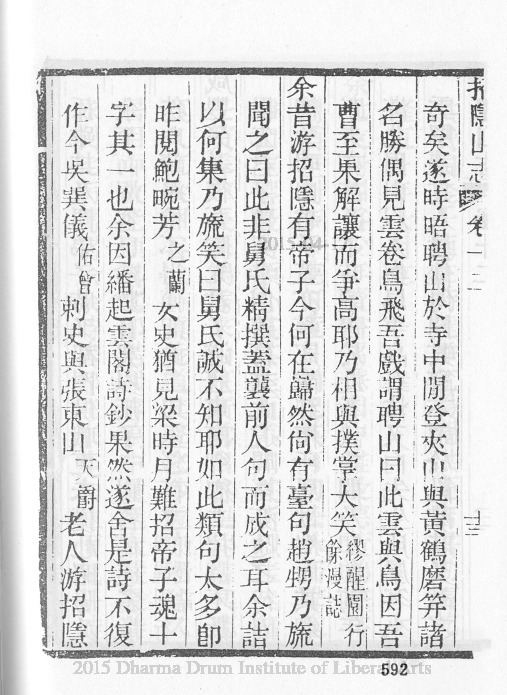 招隱山志 卷十二 十三
奇矣遂時晤聘山於寺中閒登夾山與黃鶴磨笄諸
名勝偶見雲卷鳥飛吾戲謂聘山曰此雲與鳥因吾
曹至果解讓而爭高耶乃相與撲掌大笑繆醒園行餘漫誌
余昔游招隱有帝子今何在巋然尙有臺句趙甥乃旒
聞之曰此非舅氏精撰蓋襲前人句而成之耳余詰
以何集乃旒笑曰舅氏誠不知耶如此類句太多卽
昨閱鮑畹芳之蘭女史猶見梁時月難招帝子魂十
字其一也余因繙起雲閣詩鈔果然遂舍是詩不復
作今吳巽儀佑曾刺史與張東山天爵老人游招隱
592
2015 Dharma Drum Institute of Liberal Arts